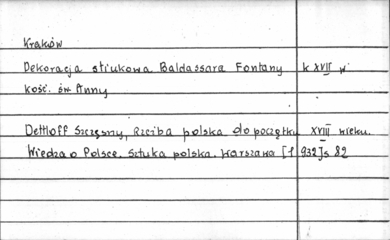 Kraków
Dekoracja stiukowa Baldassara Fontany k XVII w
kość. św Anny
Dettloff Szczęsny, Rzeźba polska do początku XVIII wieku.
Wiedza o Polsce. Sztuka polska. Warszawa [1932] s 82